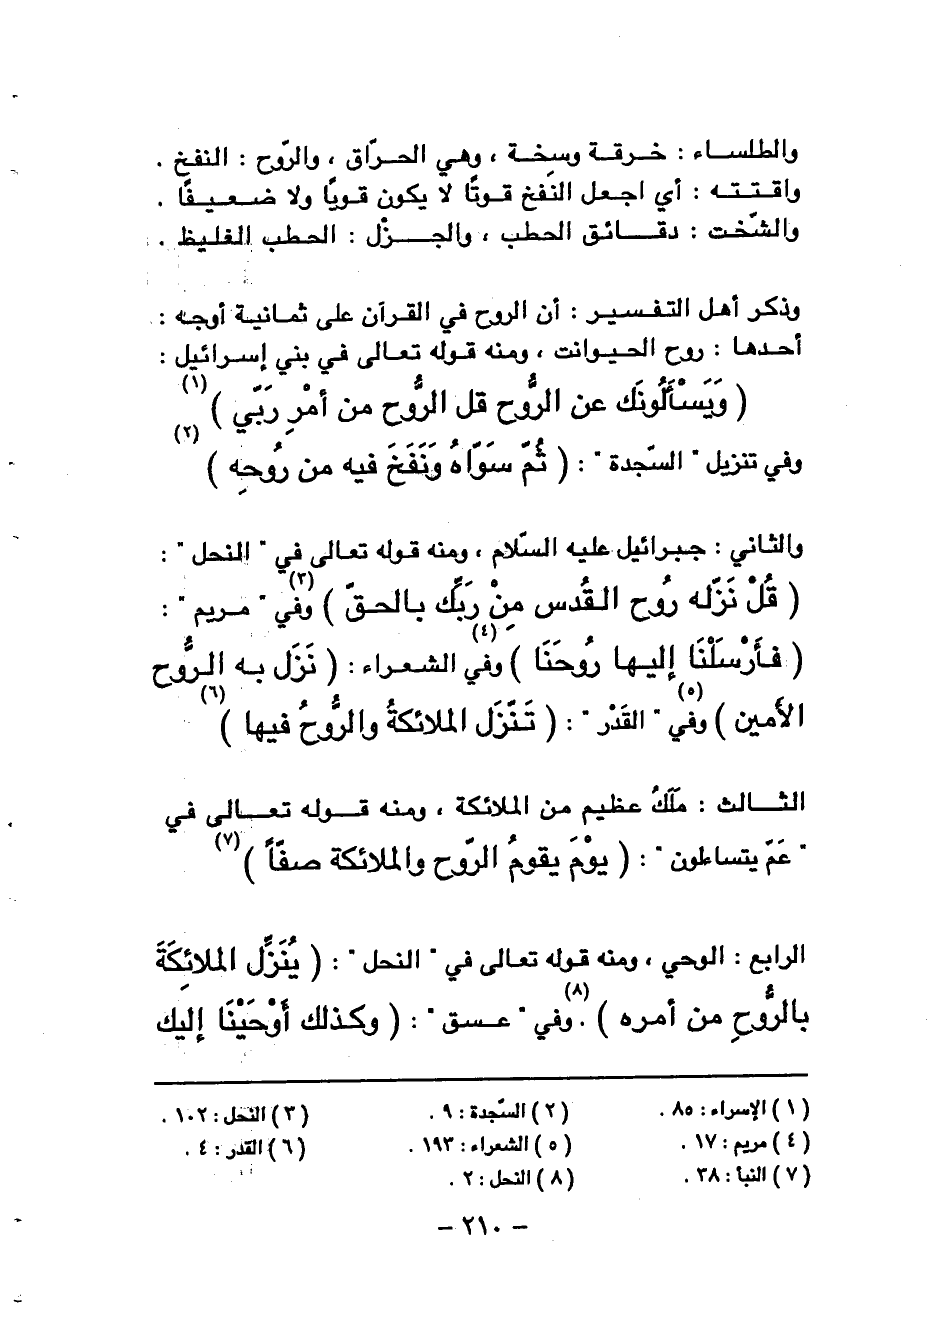 والطلساء : خرقة وسِخة ، وهي الحرّاق ، والرّوح : النفخ .
واقتته : أي اجعل النفخ قوتًا لا يكون قويًا ولا ضعيفًا .
والشّخت : دقائق الحطب ، والجزْل : الحطب الغليظ .
وذكر أهل التفسير : أن الروح في القرآن على ثمانية أوجه :
أحدها : روح الحيوانت ، ومنه قوله تعالى في بني إسرائيل :
( وَيَسْأَلُونَك عن الرُّوح قل الرُّوح من أمْرِ رَبّي ) (١)
وفي تنزيل " السّجدة " : ( ثُمّ سَوّاهُ وَنَفَخَ فيه من رُوحِه ) (٢)
والثاني : جبرائيل عليه السّلام ، ومنه قوله تعالى في " النحل " :
( قُلْ نَزّله رُوح القُدس مِنْ رَبِّك بالحقّ ) (٣) وفي " مريم " :
( فأَرْسَلْنَا إليها رُوحَنَا ) (٤) وفي الشعراء : ( نَزَل به الرُّوح
الأمين ) (٥) وفي " القَدْر " : ( تَنّزَل الملائكةُ والرُّوحُ فيها ) (٦)
الثالث : ملَكُ عظيم من الملائكة ، ومنه قوله تعالى في
" عَمّ يتساءلون " : ( يوْمَ يقومُ الرّوح والملائكة صفّاً ) (٧)
الرابع : الوحي ، ومنه قوله تعالى في " النحل " : ( يُنَزِّل الملائِكَةَ
بالرُّوحِ من أمره ) (٨) . وفي " عسق " : ( وكذلك أَوْحَيْنَا إليك
(١) الإسراء : ٨٥ . (٢) السّجدة : ٩ . (٣) النحل : ١٠٢ .
(٤) مريم : ١٧ . (٥) الشعراء : ١٩٣ . (٦) القدر : ٤ .
(٧) النبأ : ٣٨ . (٨) النحل : ٢ .
- ٢١٠ -